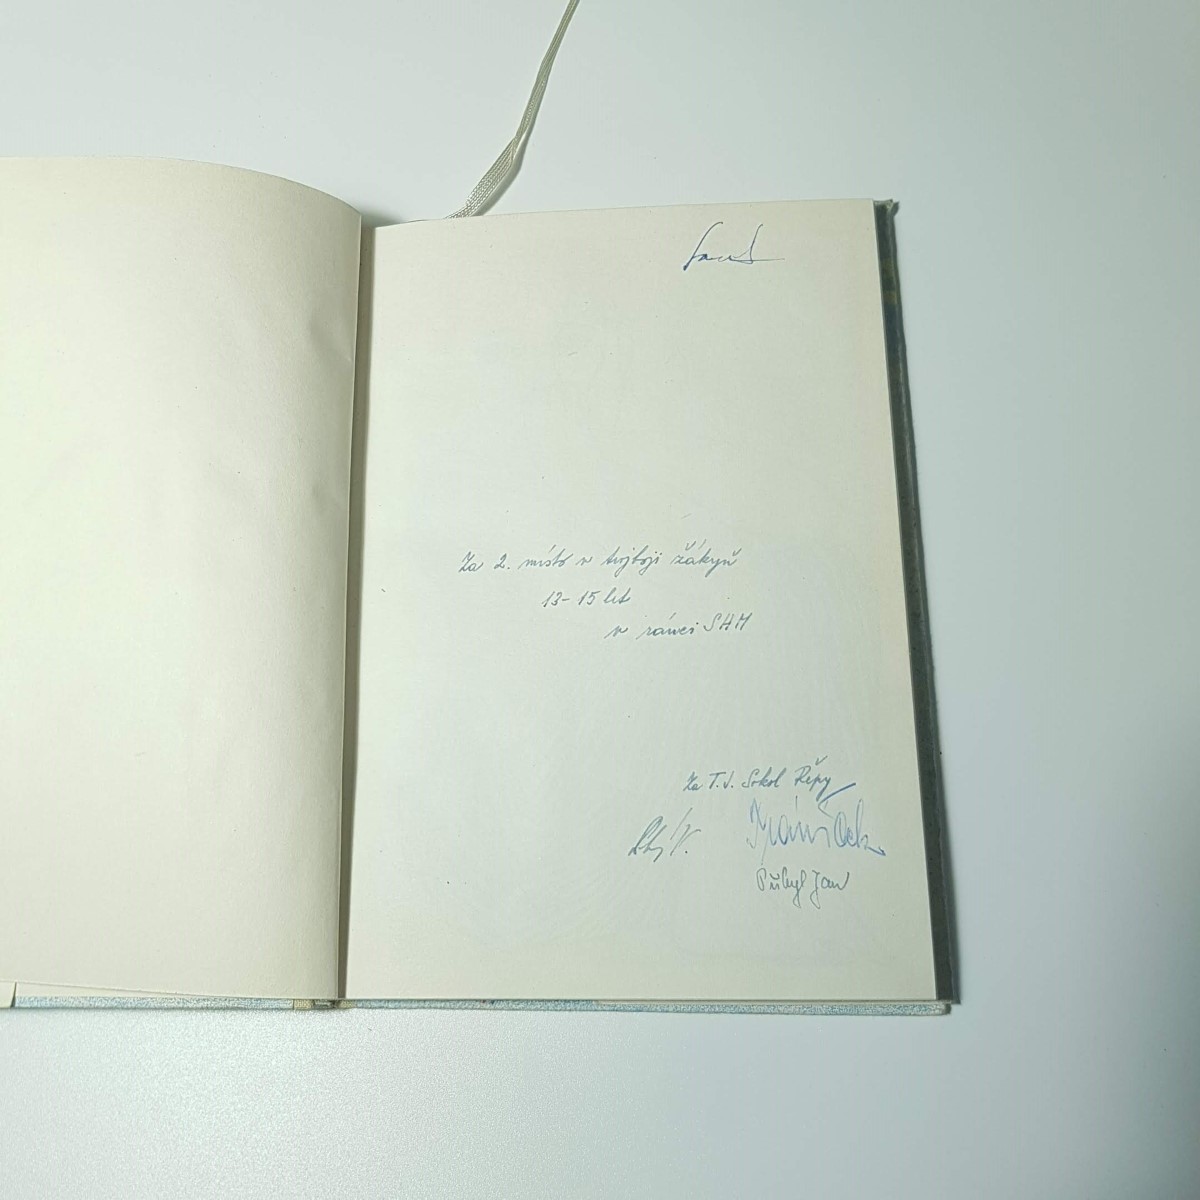 Za 2. místo v trojboji žákyň
13-15 let
v rámci SHM
Za T.J. Sokol Řepy
Přibyl Jan